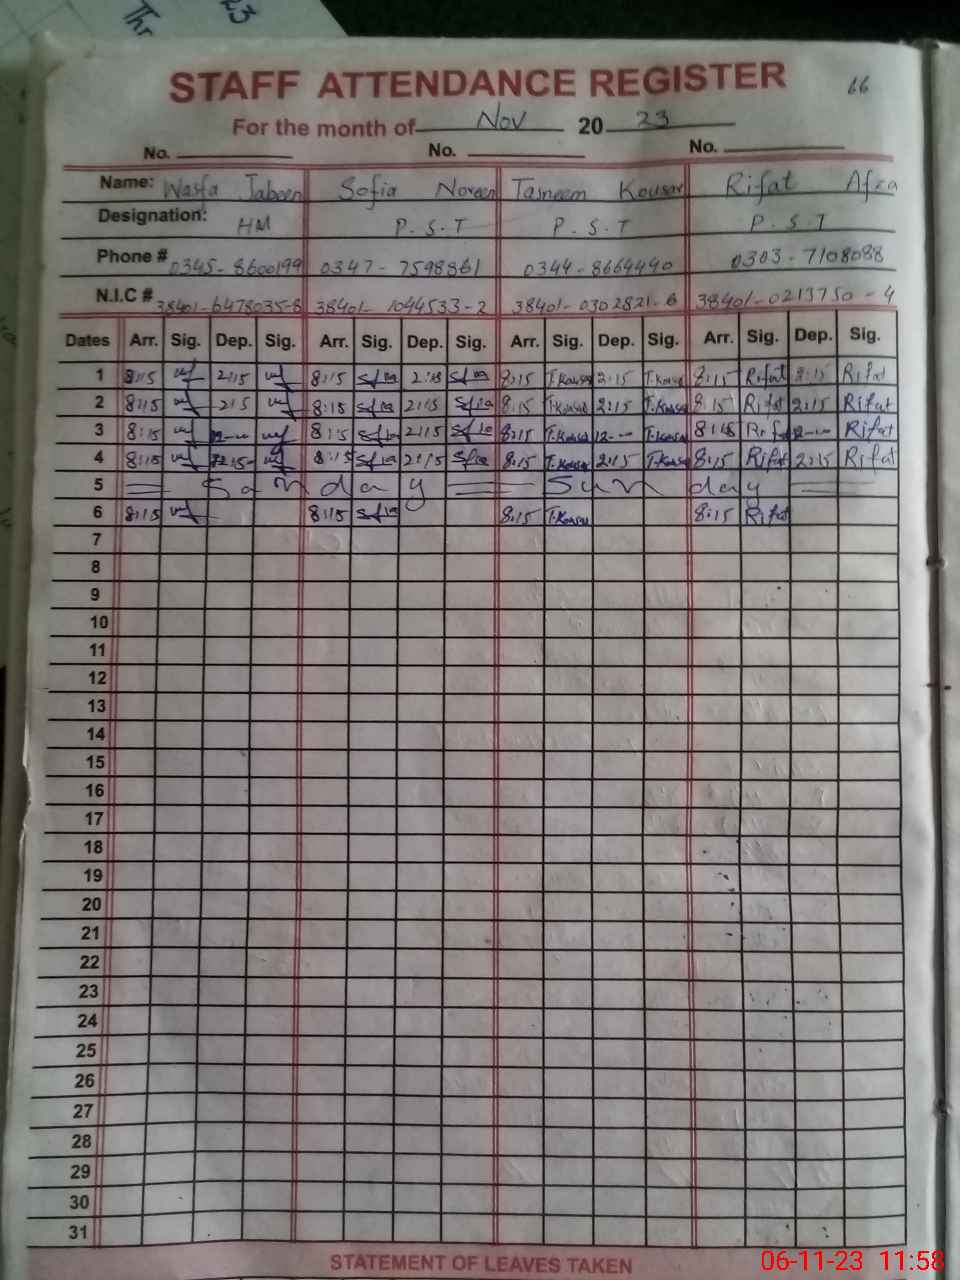 23
Thr
STAFF ATTENDANCE REGISTER 66
For the month of Nov 20 23
No. No. No.
Name: Wasfa Jabeen Sofia Noreen Tasneem Kousar Rifat Afza
Designation: HM P.S.T P.S.T P.S.T
Phone # 0345-8600199 0347-7598861 0344-8664440 0303-7108088
N.I.C # 38401-6478035-8 38401-1044533-2 38401-0302821-6 38401-0213750-4
Dates Arr. Sig. Dep. Sig. Arr. Sig. Dep. Sig. Arr. Sig. Dep. Sig. Arr. Sig. Dep. Sig.
1 8:15 2:15 8:15 Sofia 2:15 Sofia 8:15 T.Kousar 2:15 T.Kousar 8:15 Rifat 2:15 Rifat
2 8:15 2:15 8:15 Sofia 2:15 Sofia 8:15 T.Kousar 2:15 T.Kousar 8:15 Rifat 2:15 Rifat
3 8:15 12-00 8:15 Sofia 2:15 Sofia 8:15 T.Kousar 12-00 T.Kousar 8:15 Rifat 12-00 Rifat
4 8:15 2:15 8:15 Sofia 2:15 Sofia 8:15 T.Kousar 2:15 T.Kousar 8:15 Rifat 2:15 Rifat
5 Sunday Sunday
6 8:15 8:15 Sofia 8:15 T.Kousar 8:15 Rifat
7
8
9
10
11
12
13
14
15
16
17
18
19
20
21
22
23
24
25
26
27
28
29
30
31
STATEMENT OF LEAVES TAKEN
06-11-23 11:58